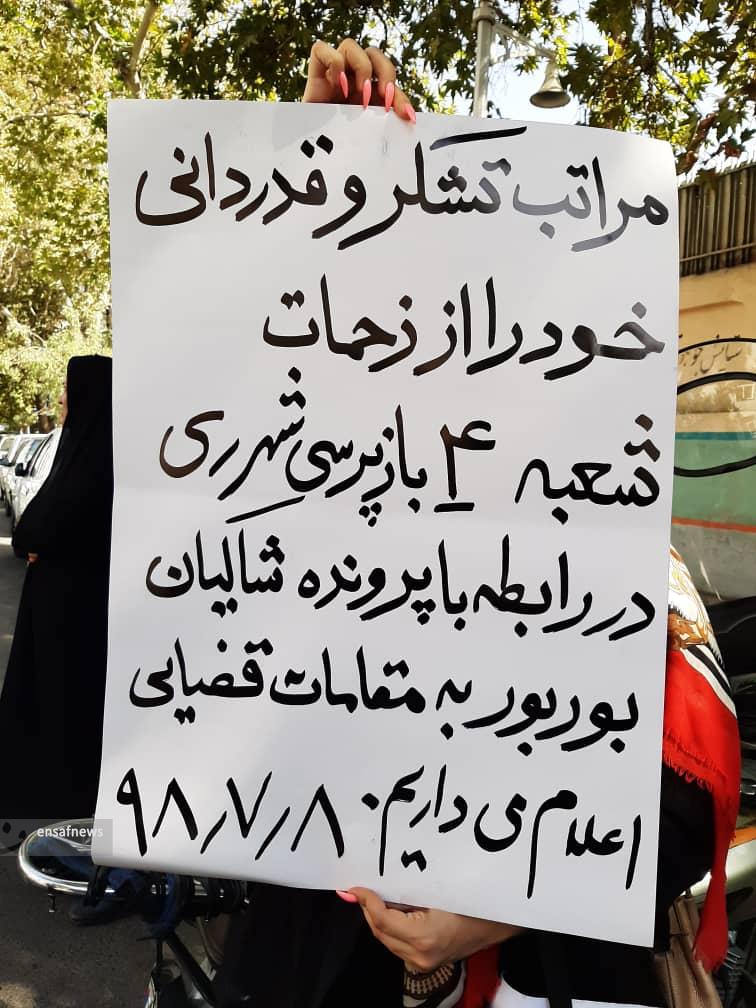 مراتب تشکر و قدردانی
خود را از زحمات
شعبه ۴ بازپرسی شهرری
در رابطه با پرونده شاکیان
بوربور به مقامات قضایی
اعلام می داریم. ۹۸٫۷٫۸
ensafnews